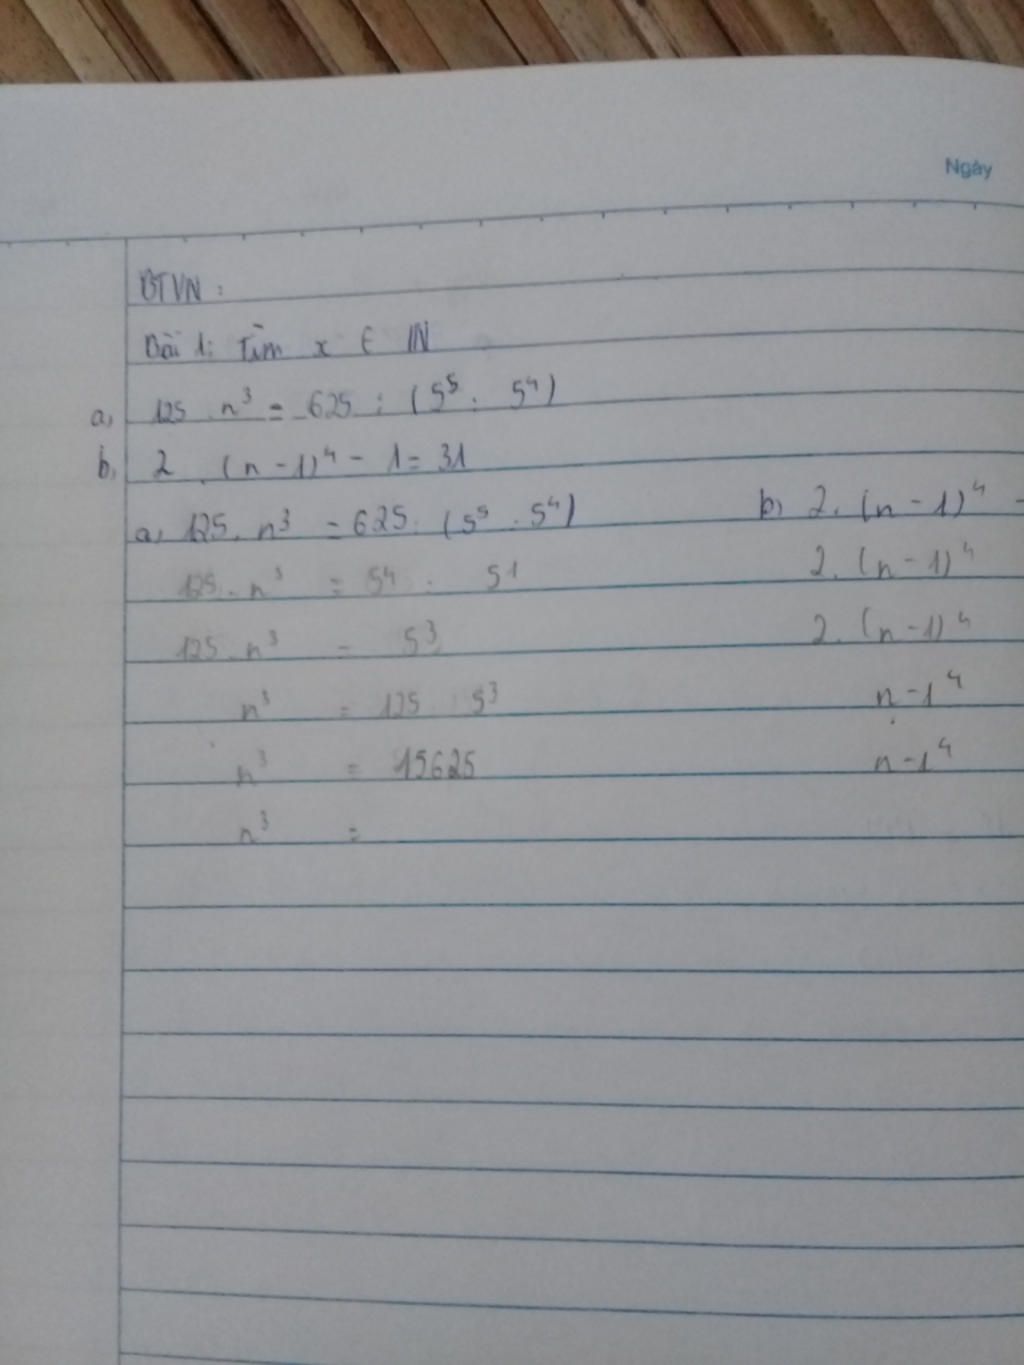 Ngày
BTVN :
Bài 1: Tìm x ∈ N
a, 125 . n³ = 625 : (5⁵ : 5⁴)
b, 2 . (n - 1)⁴ - 1 = 31
a, 125 . n³ = 625 : (5⁵ : 5⁴)
125 . n³ = 5⁴ : 5¹
125 . n³ = 5³
n³ = 125 . 5³
n³ = 15625
n³ =
b) 2 . (n - 1)⁴ -
2 . (n - 1)⁴
2 . (n - 1)⁴
n - 1⁴
n - 1⁴